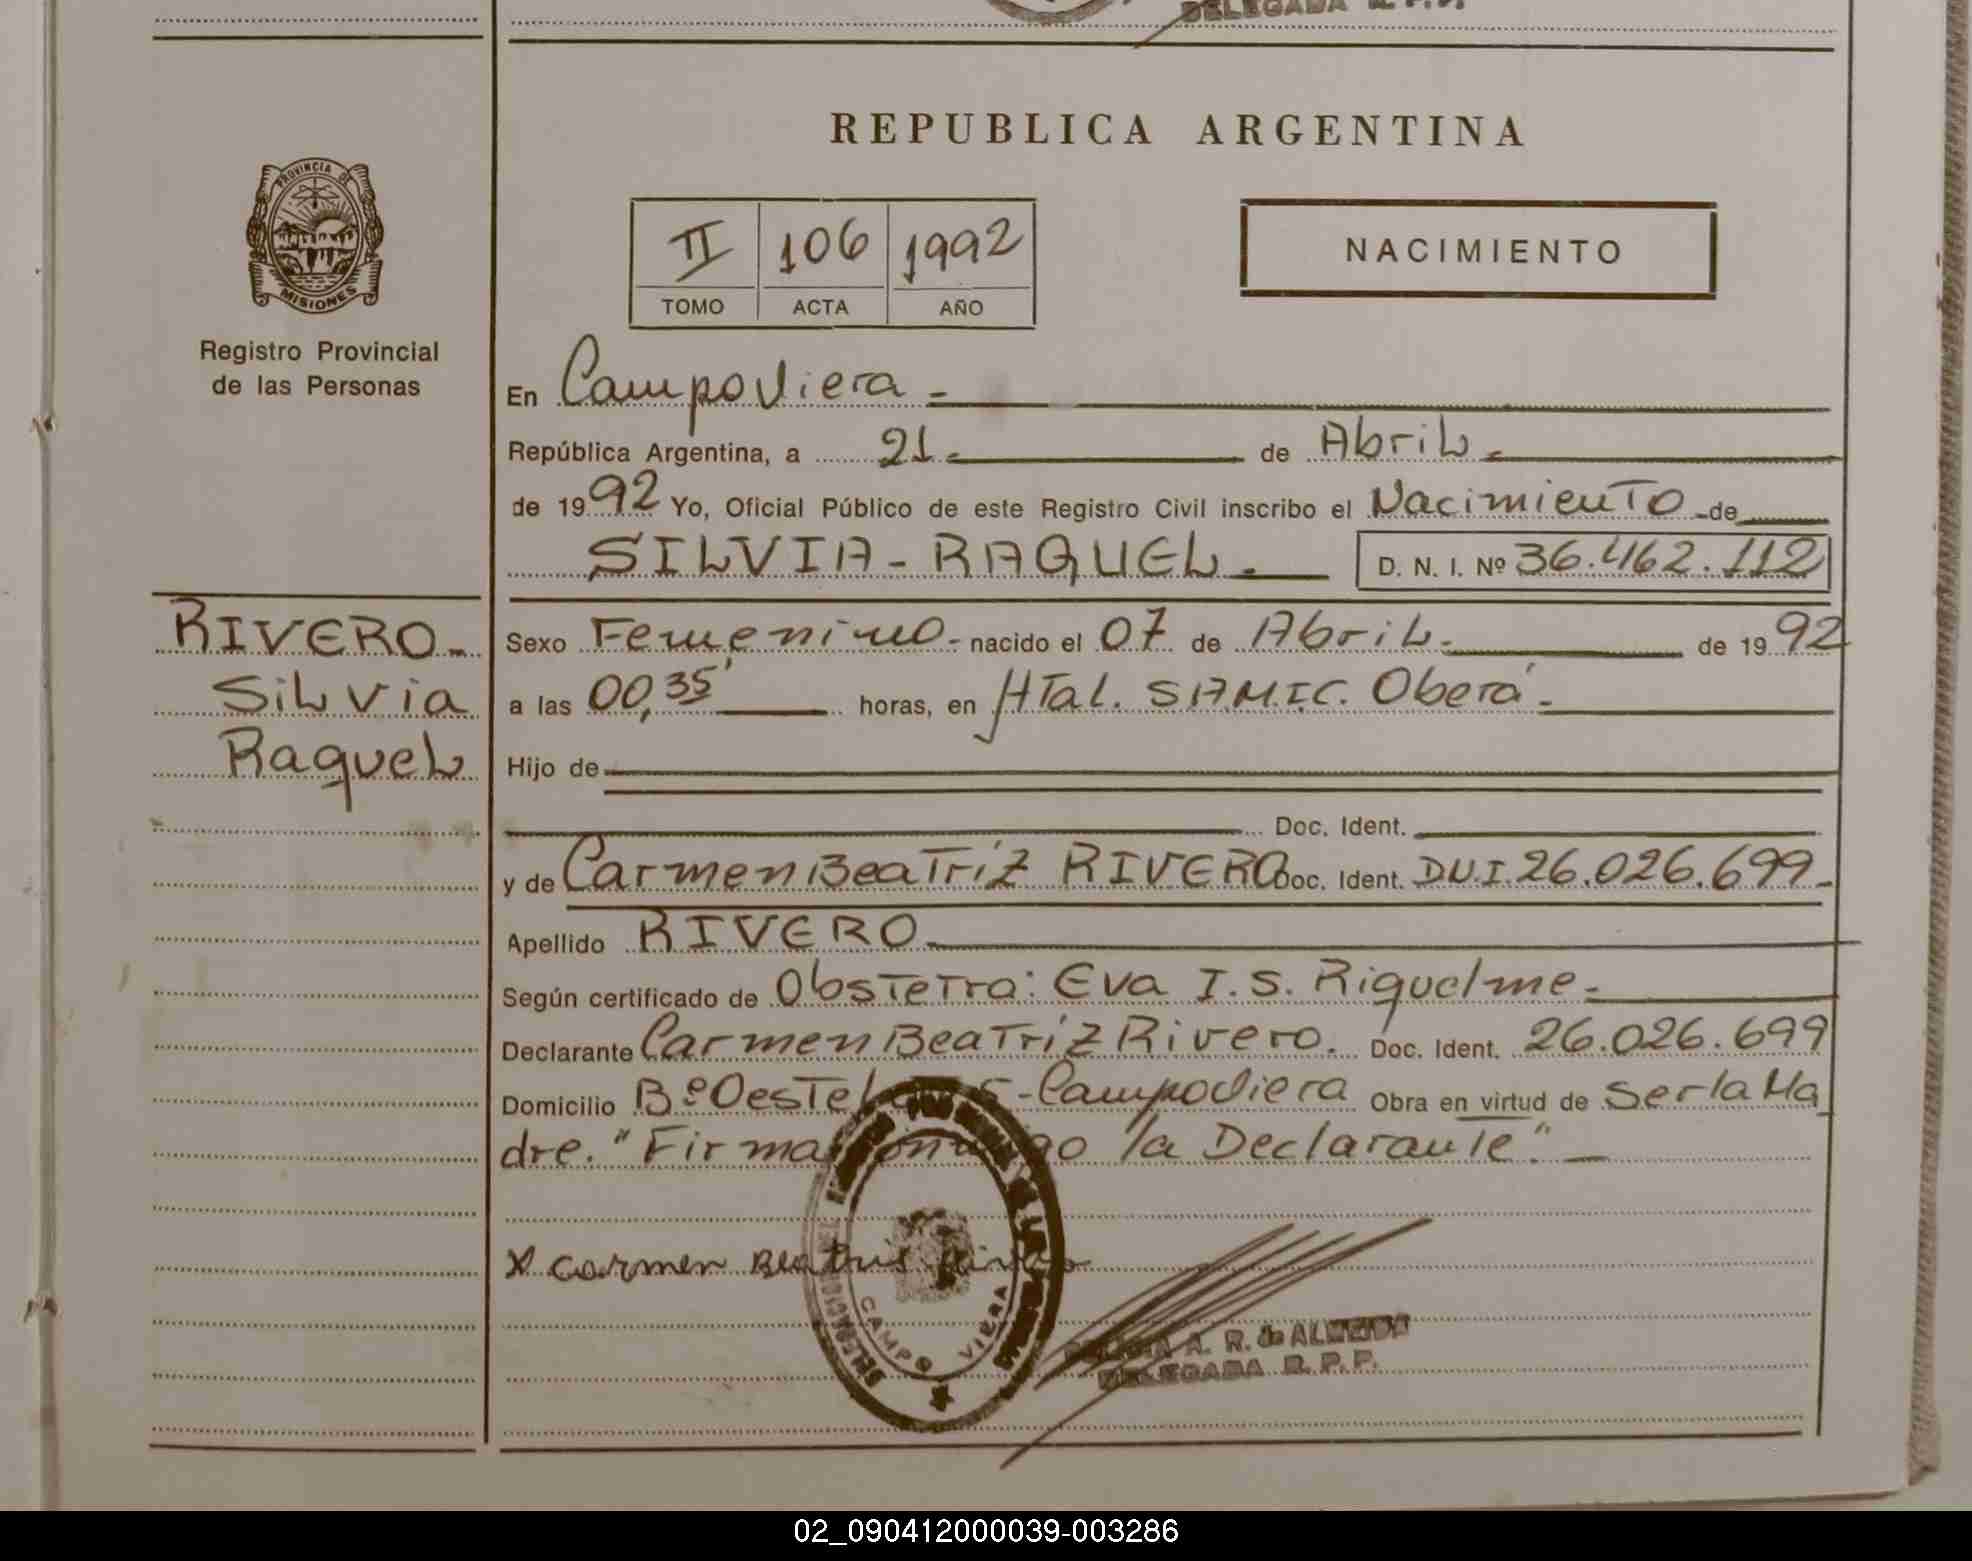 DELEGADA R. P. P.
REPUBLICA ARGENTINA
PROVINCIA DE
MISIONES
Registro Provincial
de las Personas
II 106 1992
TOMO ACTA AÑO
NACIMIENTO
En Campo Viera -
República Argentina, a 21.- de Abril.-
de 1992 Yo, Oficial Público de este Registro Civil inscribo el Nacimiento -de
SILVIA-RAQUEL.- D. N. I. Nº 36.462.112
RIVERO-
Silvia
Raquel
Sexo Femenino- nacido el 07 de Abril.- de 1992
a las 00,35' horas, en HTal. SAMIC. Oberá.-
Hijo de
Doc. Ident.
y de Carmen Beatríz RIVERO Doc. Ident. DU.I. 26.026.699-
Apellido RIVERO
Según certificado de Obstetra: Eva I. S. Riquelme.-
Declarante Carmen Beatríz Rivero. Doc. Ident. 26.026.699
Domicilio Bº Oeste -Campo Viera Obra en virtud de Ser la Ma
dre. "Firma la Declarante".-
X Carmen Beatris
CAMPO VIERA
A. R. de ALMEIDA
DELEGADA R. P. P.
02_090412000039-003286